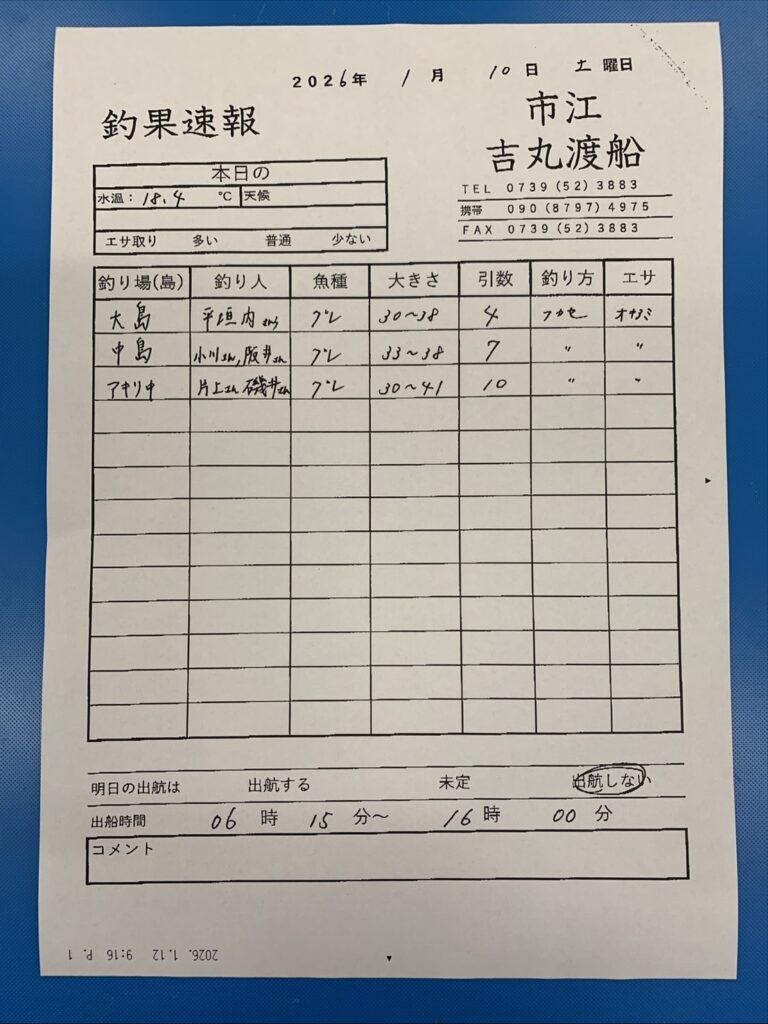 2026年 1月 10日 土曜日
釣果速報
市江
吉丸渡船
TEL 0739(52)3883
携帯 090(8797)4975
FAX 0739(52)3883
本日の
水温：18.4 ℃ 天候
エサ取り 多い 普通 少ない
釣り場(島) 釣り人 魚種 大きさ 引数 釣り方 エサ
大島 平垣内さん グレ 30〜38 4 フカセ オキアミ
中島 小川さん,阪井さん グレ 33〜38 7 〃 〃
アキリ中 片上さん 磯井さん グレ 30〜41 10 〃 〃
明日の出航は 出航する 未定 出航しない
出船時間 06時 15分〜 16時 00分
コメント
2026. 1.12 9:16 P. 1